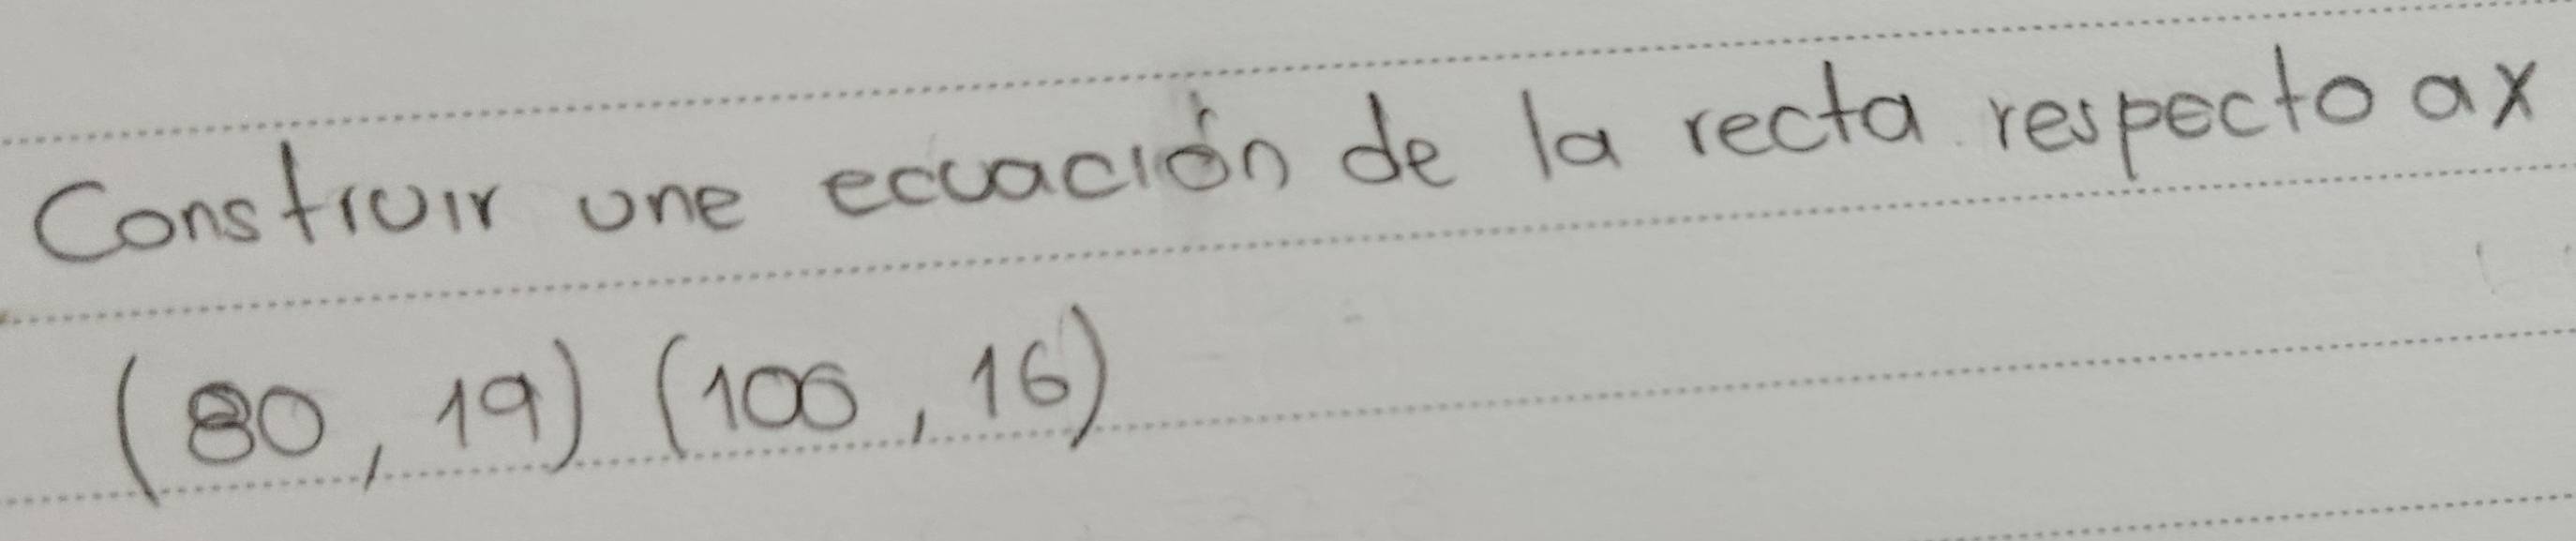 Construir une ecuación de la recta respecto a x
(80, 19) (100, 16)